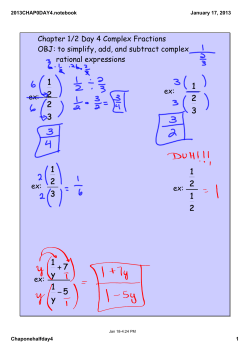 2013CHAP0DAY4.notebook
January 17, 2013
Chapter 1/2 Day 4 Complex Fractions
OBJ: to simplify, add, and subtract complex 1/(2/3)
rational expressions
6 (1/2)
ex:
6 (2/3)
1/2 ÷ 2/3
1/2 · 3/2 = 3/4
3/4
3 (1)
ex:
3 (2/3)
3/2
2 (1/2)
ex:
2 (3)
= 1/6
DUH!!!
ex:
1/2
1/2
= 1
y (1/y + 7)
ex:
y (1/y − 5)
=
1 + 7y
1 − 5y
Jan 18-4:24 PM
Chaponehalfday4
1